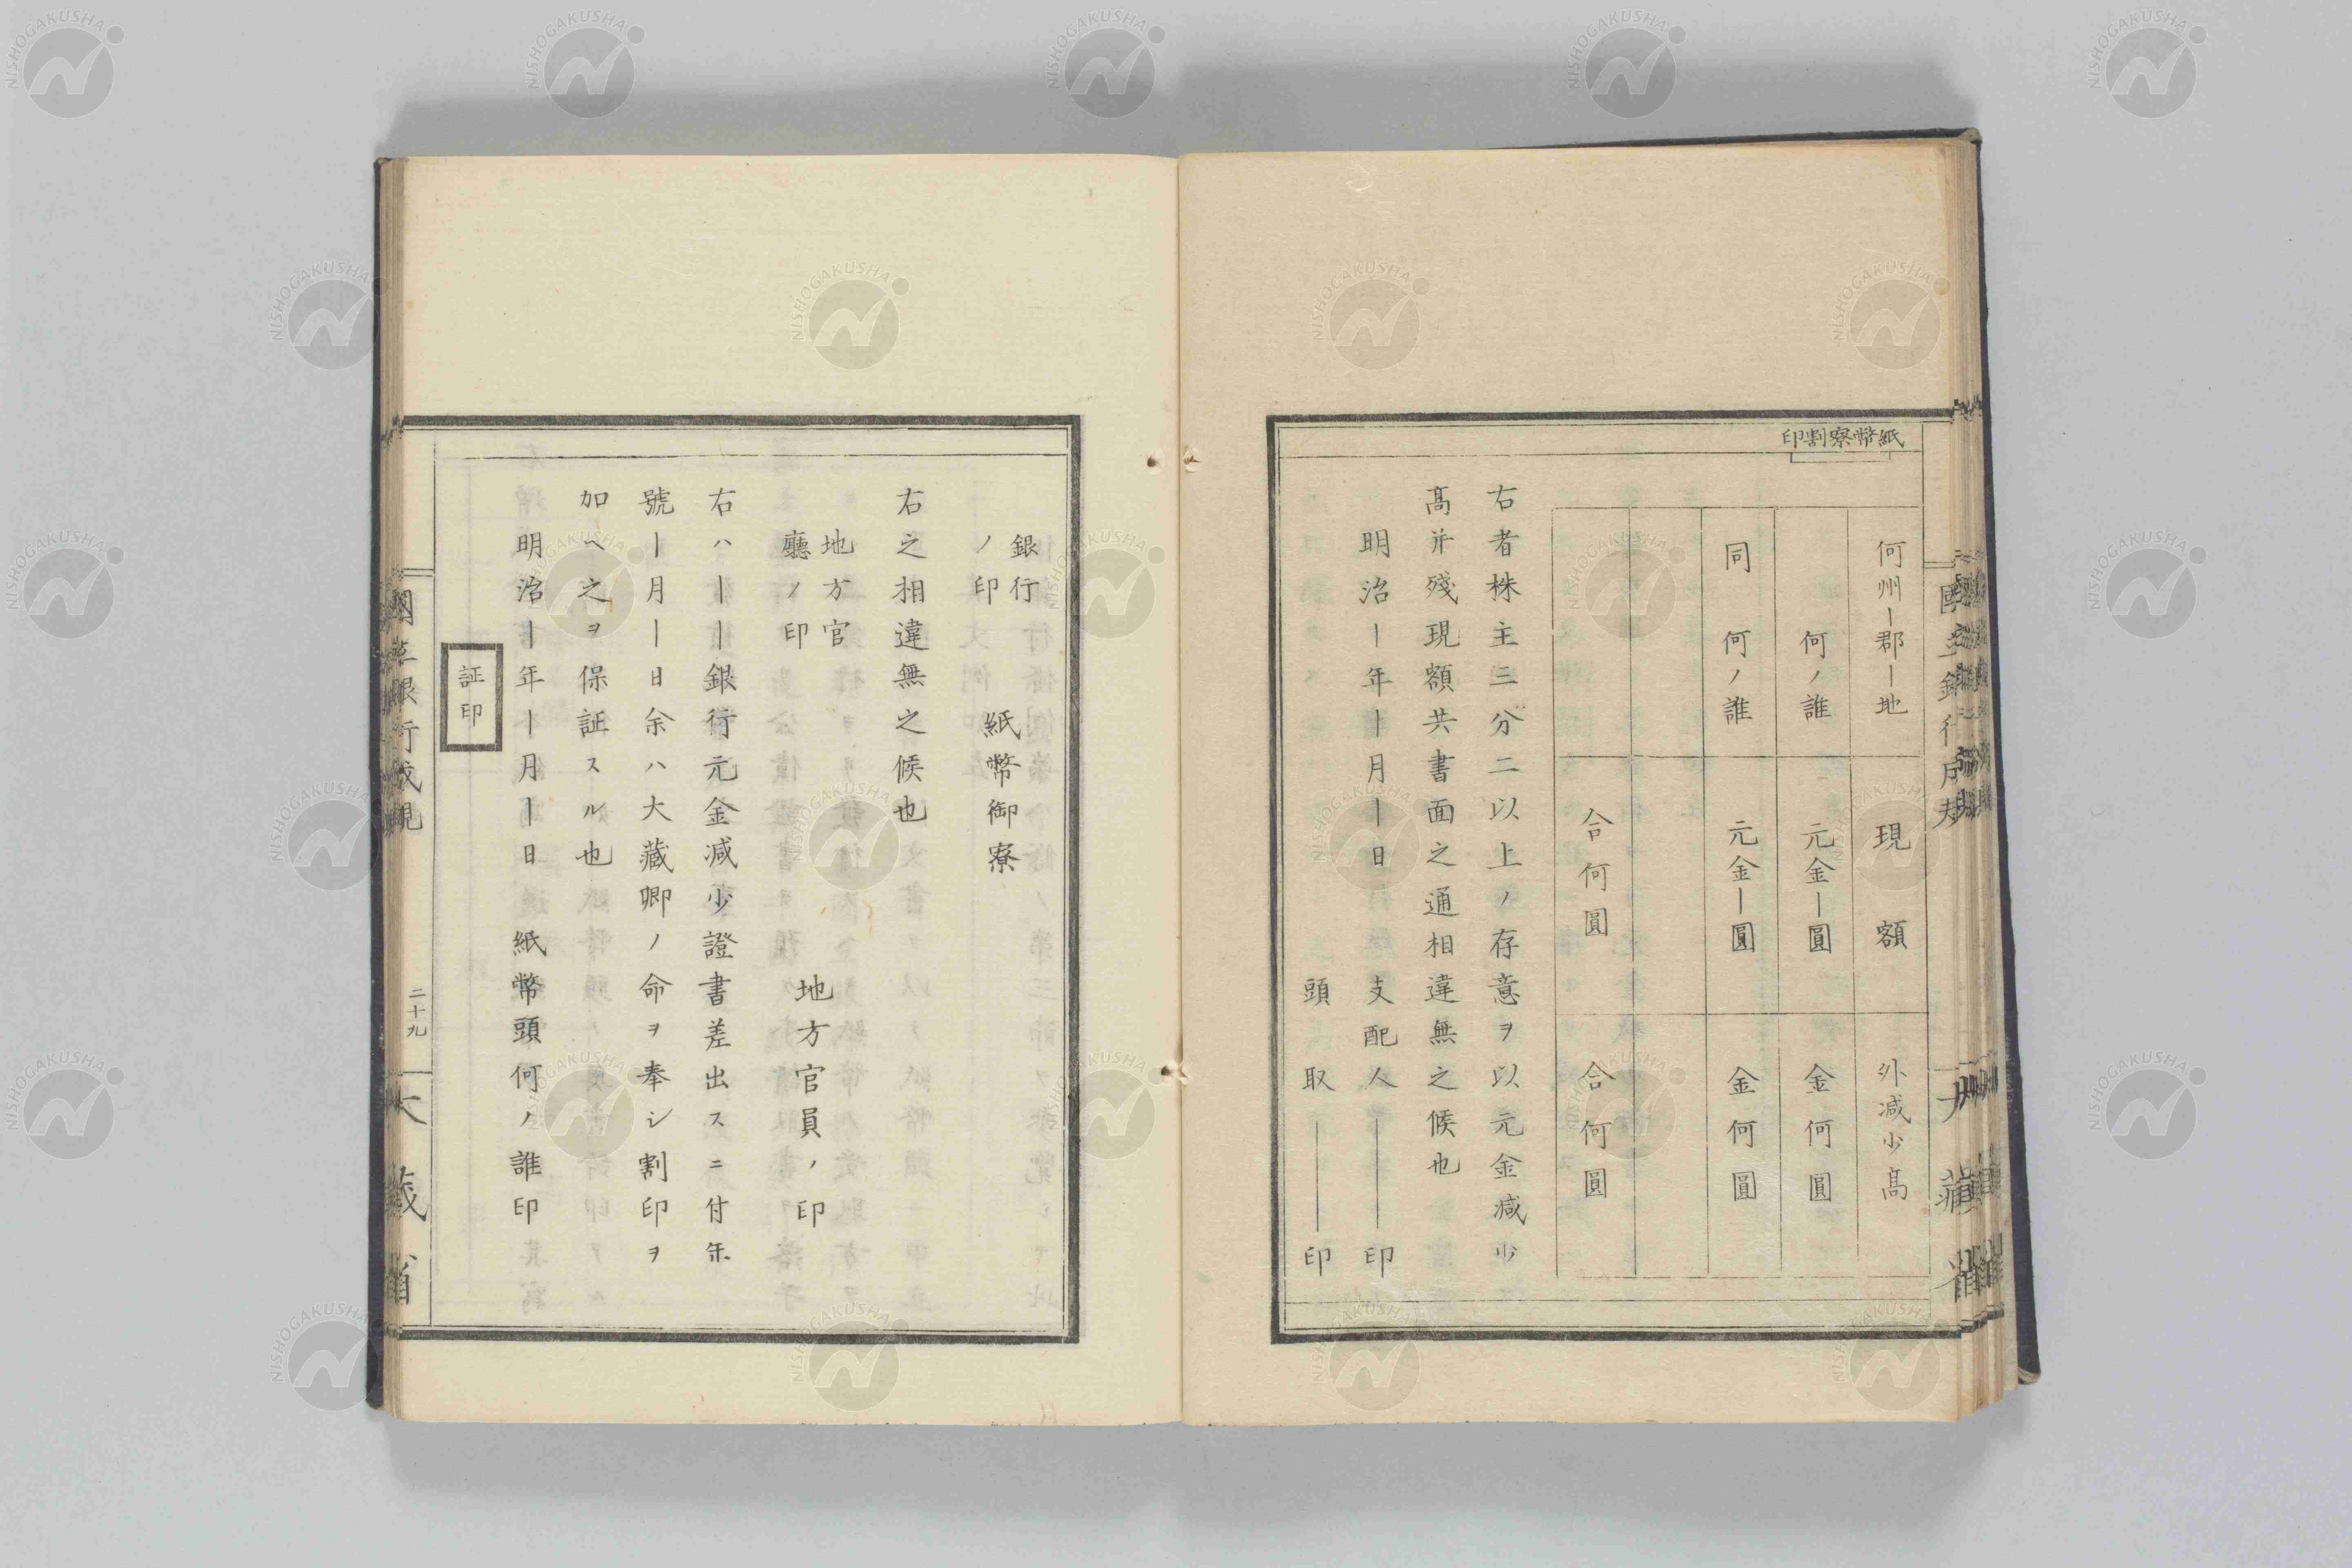 紙幣寮割印
何州ー郡ー地 現額 外減少高
何ノ誰 元金ー圓 金何圓
同 何ノ誰 元金ー圓 金何圓
合何圓 合何圓
右者株主三分二以上ノ存意ヲ以元金減少
高并殘現額共書面之通相違無之候也
明治ー年ー月ー日 支配人 印
頭取 印
銀行
ノ印
紙幣御寮
右之相違無之候也
地方官
廳ノ印
地方官員ノ印
右ハーー銀行元金減少證書差出スニ付年
號ー月ー日余ハ大藏卿ノ命ヲ奉シ割印ヲ
加ヘ之ヲ保証スル也
明治ー年ー月ー日 紙幣頭何ノ誰印
証印
國立銀行成規
二十九
大藏省
NISHOGAKUSHA